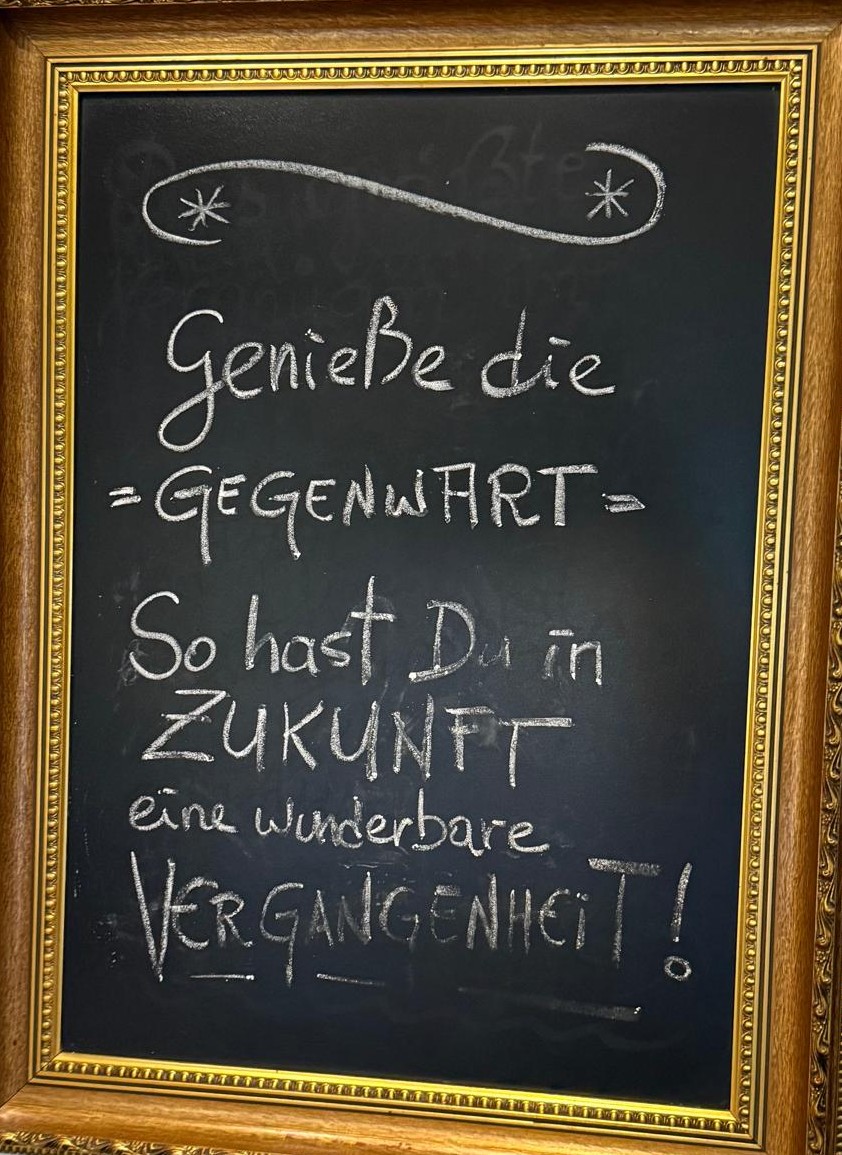 Genieße die
=GEGENWART=
So hast Du in
ZUKUNFT
eine wunderbare
VERGANGENHEiT!